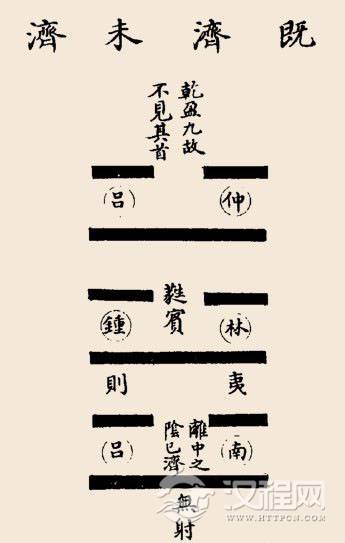 既濟未濟
乾盈九故
不見其首
仲吕
蕤賓
林鍾
夷則
離中之
陰已濟
南吕
無射
汉程网
WWW.HTTPCN.COM